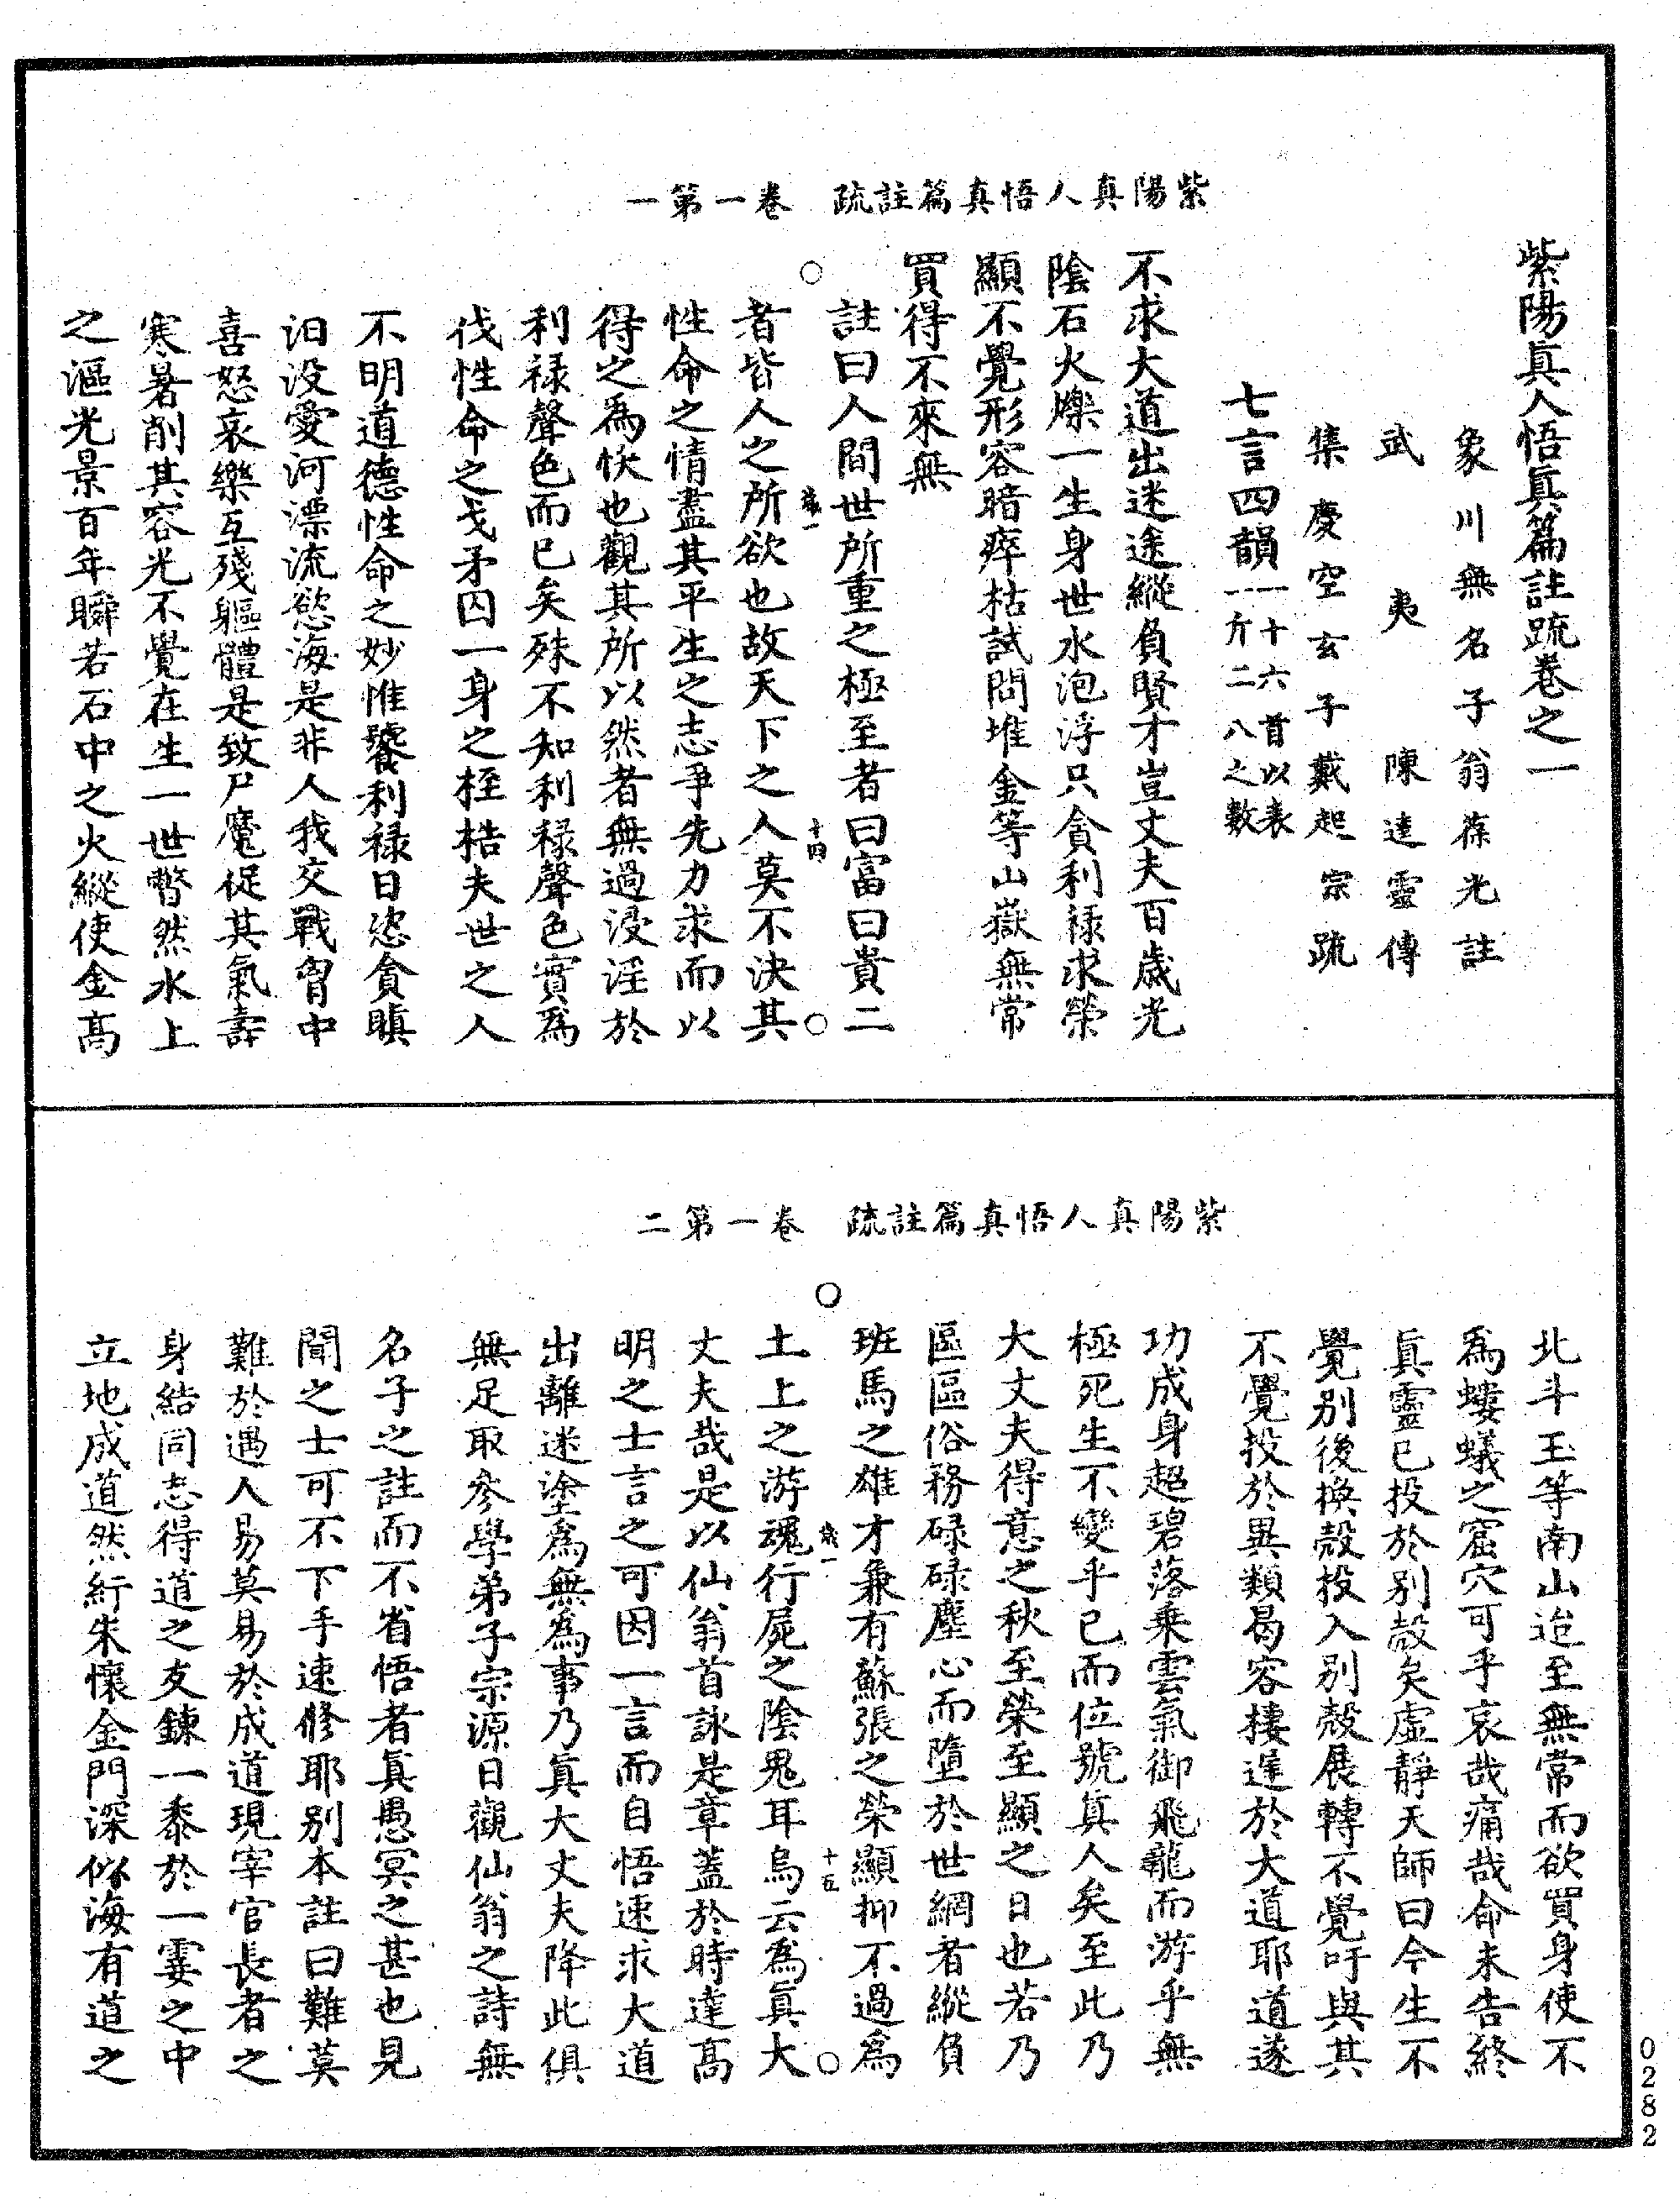 紫陽真人悟真篇註疏　卷一第一
紫陽真人悟真篇註疏卷之一
象川無名子翁葆光註
武夷陳達靈傳
集慶空玄子戴起宗疏
七言四韻一十六首以表
一斤二八之數
不求大道出迷途縱負賢才豈丈夫百歲光
陰石火爍一生身世水泡浮只貪利祿求榮
顯不覺形容暗瘁枯試問堆金等山嶽無常
買得不來無
註曰人間世所重之極至者曰富曰貴二
歲一　十四
者皆人之所欲也故天下之人莫不決其
性命之情盡其平生之志爭先力求而以
得之為快也觀其所以然者無過浸淫於
利祿聲色而已矣殊不知利祿聲色實為
伐性命之戈矛囚一身之桎梏夫世之人
不明道德性命之妙惟饕利祿日恣貪瞋
汩没愛河漂流慾海是非人我交戰胷中
喜怒哀樂互殘軀體是致尸魔促其氣壽
寒暑削其容光不覺在生一世瞥然水上
之漚光景百年瞬若石中之火縱使金高
紫陽真人悟真篇註疏　卷一第二
北斗玉等南山迨至無常而欲買身使不
為螻蟻之窟穴可乎哀哉痛哉命未告終
真靈已投於别殼矣虛靜天師曰今生不
覺别後換殼投入别殼展轉不覺吁與其
不覺投於異類曷容棲遲於大道耶道遂
功成身超碧落乘雲氣御飛龍而游乎無
極死生不變乎已而位號真人矣至此乃
大丈夫得意之秋至榮至顯之日也若乃
區區俗務碌碌塵心而墮於世網者縱負
班馬之雄才兼有蘇張之榮顯抑不過為
歲一　十五
土上之游魂行屍之陰鬼耳烏云為真大
丈夫哉是以仙翁首詠是章蓋於時達高
明之士言之可因一言而自悟速求大道
出離迷塗為無為事乃真大丈夫降此俱
無足取參學弟子宗源日觀仙翁之詩無
名子之註而不省悟者真愚冥之甚也見
聞之士可不下手速修耶别本註曰難莫
難於遇人易莫易於成道現宰官長者之
身結同志得道之友鍊一黍於一霎之中
立地成道然紆朱懷金門深似海有道之
0282